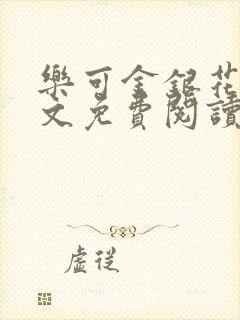 樂可金銀花
文免費閱讀
虛從